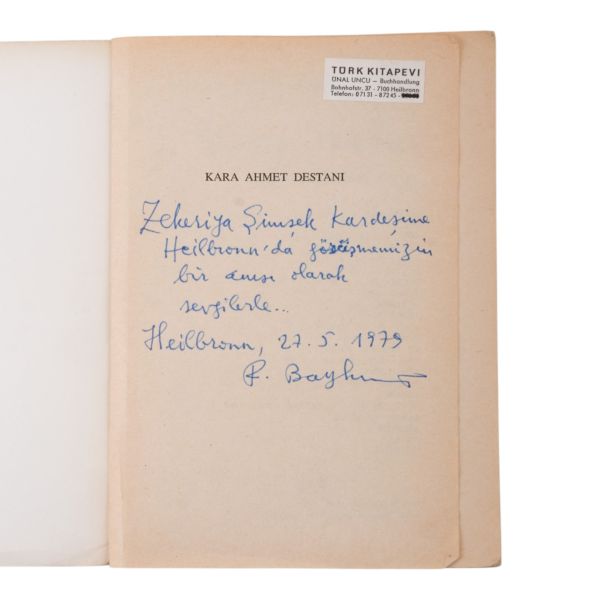 TÜRK KITAPEVI
ÜNAL UNCU — Buchhandlung
Bahnhofstr. 37 - 7100 Heilbronn
Telefon: 07131 - 87245 -
KARA AHMET DESTANI
Zekeriya Şimşek Kardeşime
Heilbronn'da görüşmemizin
bir anısı olarak
sevgilerle...
Heilbronn, 27. 5. 1979
F. Baykurt